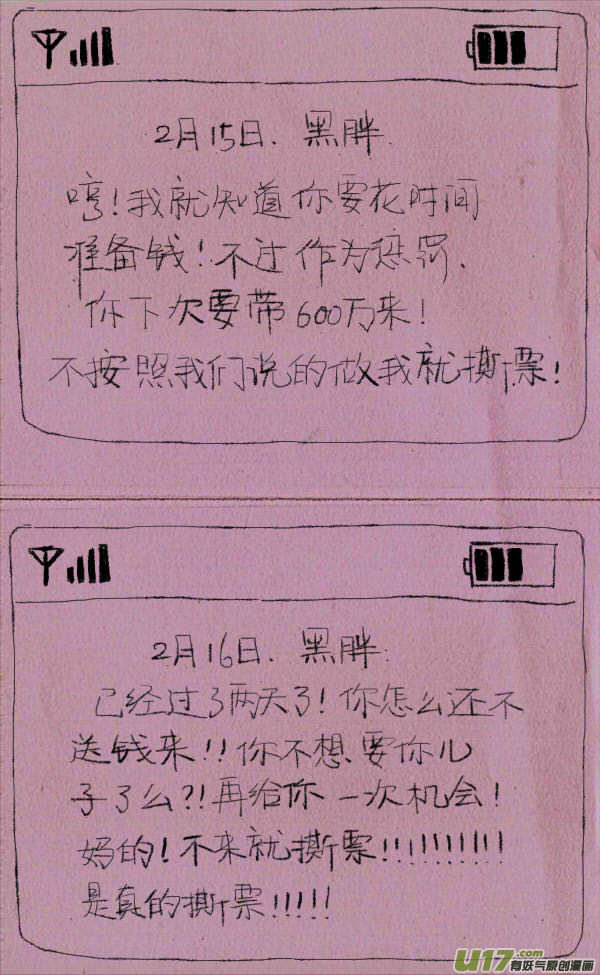 2月15日. 黑胖
哼!我就知道你要花时间
准备钱!不过作为惩罚、
你下次要带600万来!
不按照我们说的做我就撕票!
2月16日. 黑胖.
已经过了两天了!你怎么还不
送钱来!!你不想要你儿
子了么?!再给你一次机会!
妈的!不来就撕票!!!!!!!!!!
是真的撕票!!!!!
U17.com
有妖气原创漫画